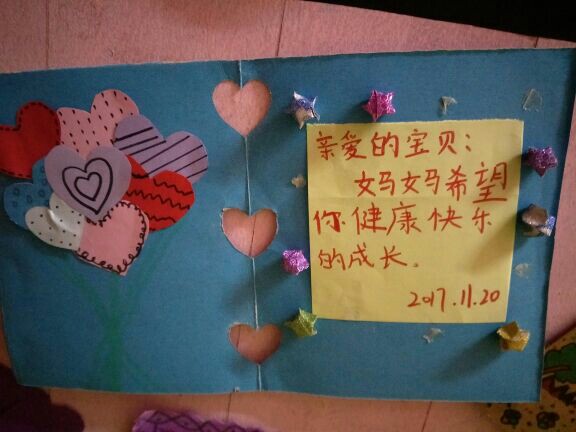 亲爱的宝贝：
妈妈希望
你健康快乐
的成长.
2017.11.20